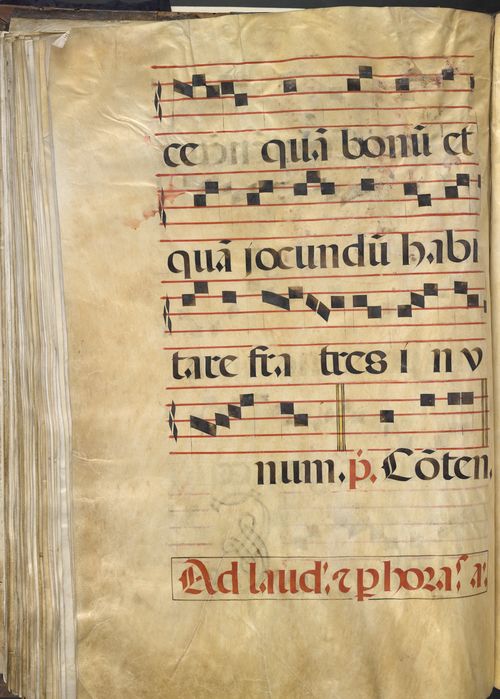 ce quā bonū et
quā jocundū habi
tare fra tres i n v
num. p̄. Cōten.
Ad laud'. ⁊ ꝑ horas. a: